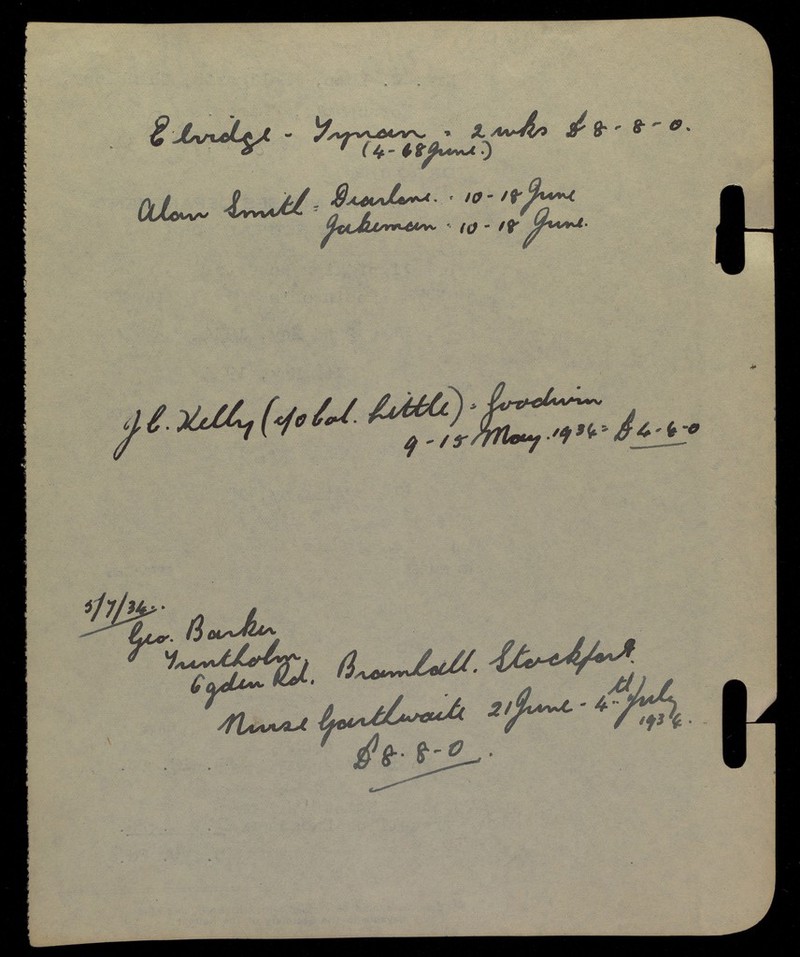 Elvidge - Tynan = 2 wks £8-8-0.
(4-18 June.)
Alan Smith = Dearlane. - 10-18 June
Jakeman - 10-18 June.
J C. Kelly (c/o Col. Little) = Goodwin
9-15 May. 1934 = £4-4-0
5/7/34.
Geo. Barker
Trintholm,
Ogden Rd. Bramhall. Stockport.
Nurse Garthwaite 21 June - 4th July
1934.
£8-8-0.